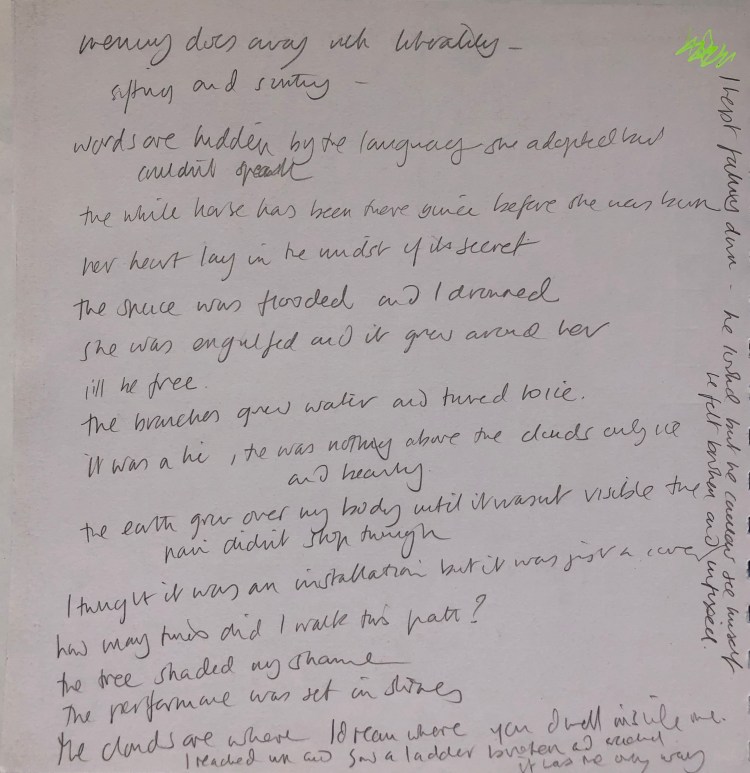 memory does away with literality -
sifting and
words are hidden by the language she adopted but
couldn't speak
the white horse has been there since before she was born
her heart lay in the midst of its secret
the space was flooded and I drowned
she was engulfed and it grew around her
ill be free.
the branches grew water and turned to ice.
it was a lie, there was nothing above the clouds only ice
and beauty.
the earth grew over my body until it wasn't visible the
pain didn't stop though
I thought it was an installation but it was just a
how many times did I walk this path?
the tree shaded my shame
The performance was set in
the clouds are where I dream where you dwell inside me.
I reached up and saw a ladder broken and
it was the only way
I kept falling down - he looked but he couldn't see himself
he felt broken and